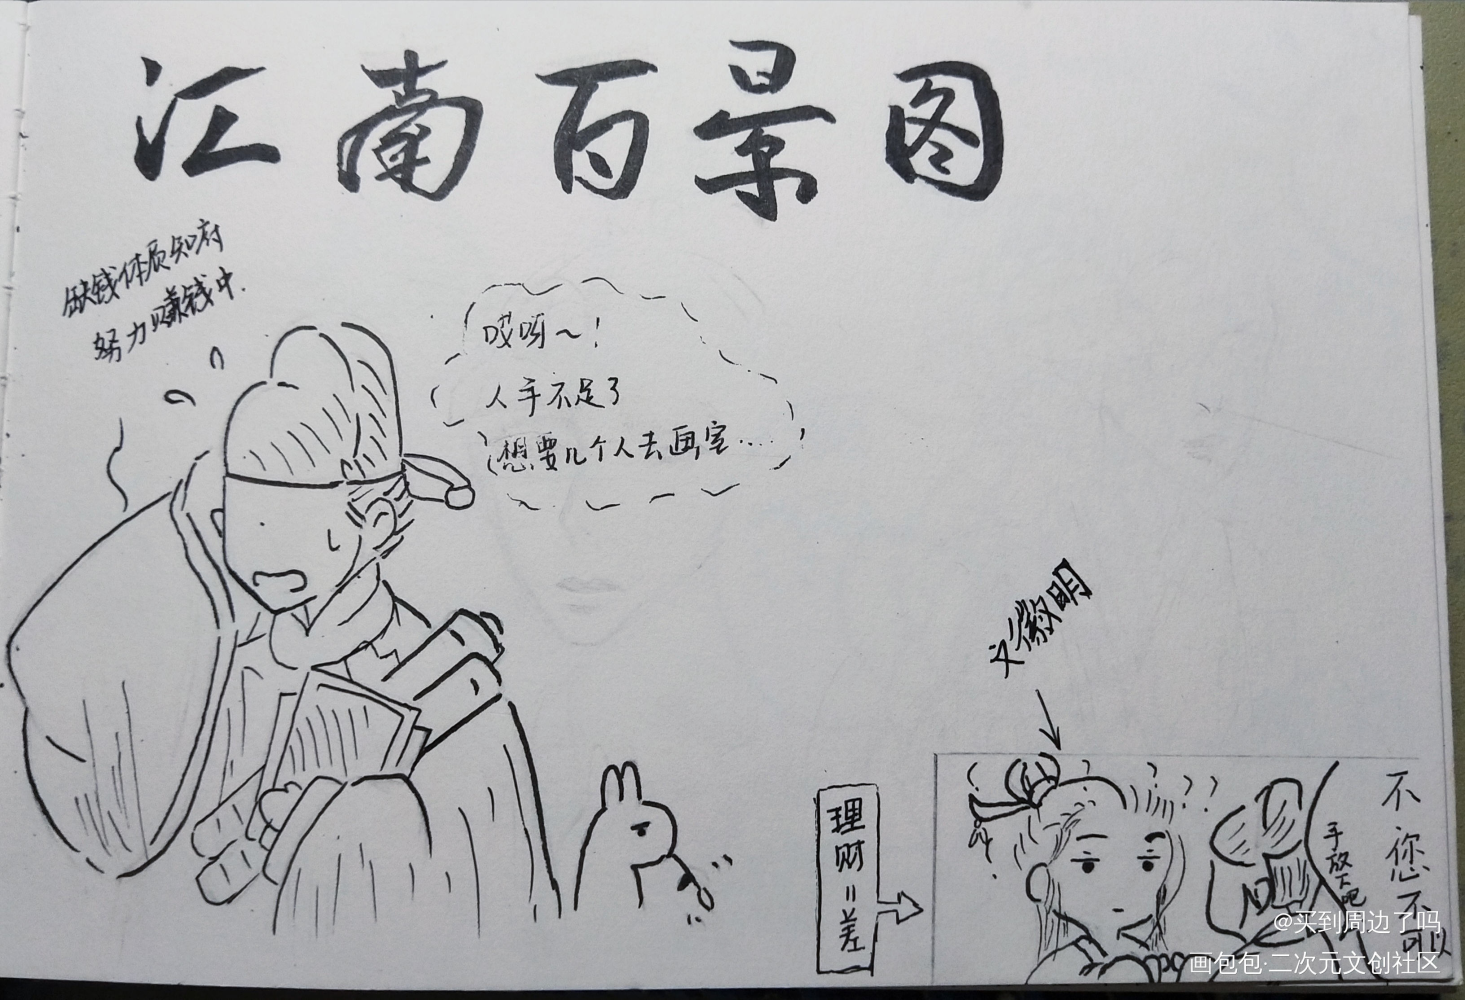 江南百景图
缺钱体质知府
努力赚钱中.
哎呀～！
人手不足了
想要几个人去画室...
文徽明
理财=差
? ? ? ?
不您不可以
手放下吧
@买到周边了吗
画包包·二次元文创社区